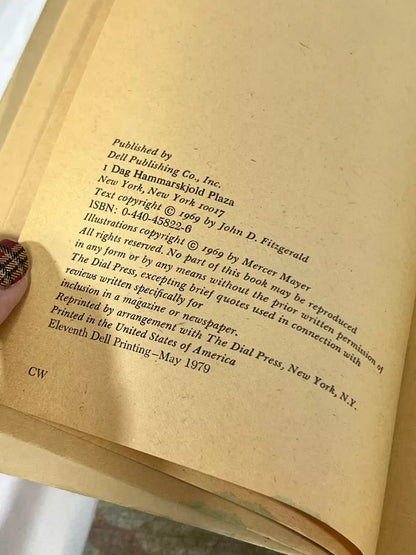 Published by
Dell Publishing Co., Inc.
1 Dag Hammarskjold Plaza
New York, New York 10017
Text copyright © 1969 by John D. Fitzgerald
ISBN: 0-440-45822-6
Illustrations copyright © 1969 by Mercer Mayer
All rights reserved. No part of this book may be reproduced
in any form or by any means without the prior written permission of
The Dial Press, excepting brief quotes used in connection with
reviews written specifically for
inclusion in a magazine or newspaper.
Reprinted by arrangement with The Dial Press, New York, N.Y.
Printed in the United States of America
Eleventh Dell Printing—May 1979
CW